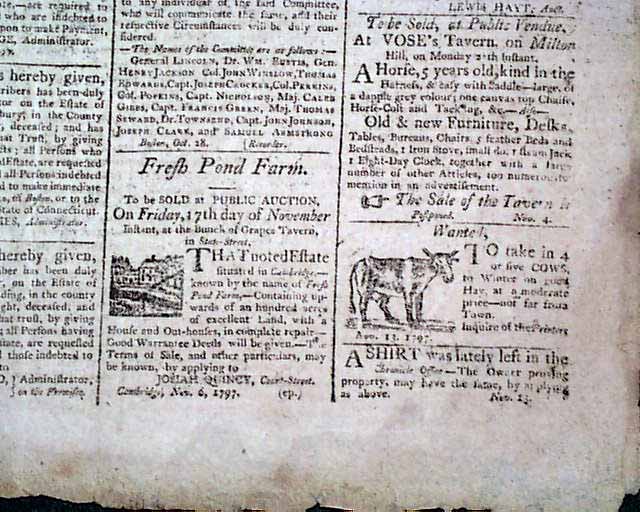 ,—are required to
who are indebted to
upon to make Payment,
GE, Administrator.
hereby given,
scribers has been duly
tor on the Estate of
bury, in the County
deceased; and has
hat Trust, by giving
: all Persons who
Estate, are requested
all Persons indebted
ed to make immediate
, at Boston, or to the
State of Connecticut.
GES, Administrator.
hereby given,
ber has been duly
, on the Estate of
ding, in the county
ght, deceased; and
hat trust, by giving
all Persons having
state, are requested
those indebted to
to
D, Administrator,
on the Premises.
to any individual of, the said Committee,
who will communicate the same, and their
respective Circumstances will be duly con-
sidered.
The Names of the Committee are as follows:—
General LINCOLN, Dr. WM. EUSTIS, Gen.
HENRY JACKSON Col. JOHN WINSLOW, THOMAS
EDWARDS, Capt. JOSEPH CROCKER, Col. PERKINS,
Col. POPKINS, Capt. NICHOLSON, Maj. CALEB
GIBBS, Capt. FRANCIS GREEN, Maj. THOMAS
SEWARD, Dr. TOWNSEND, Capt. JOHN JOHNSON,
JOSEPH CLARK, and SAMUEL ARMSTRONG
Boston, Oct. 18. Recorder.
Fresh Pond Farm.
To be SOLD at PUBLIC AUCTION,
On Friday, 17th day of November
Instant, at the Bunch of Grapes Tavern,
in State-Street,
THAT noted Estate
situated in Cambridge,—
known by the name of Fresh
Pond Farm,—Containing up-
wards of an hundred acres
of excellent Land, with a
House and Out-houses, in complete repair—
Good Warrantee Deeds will be given.—The
Terms of Sale, and other particulars, may
be known, by applying to
JOSIAH QUINCY, Court-Street.
Cambridge, Nov. 6, 1797. (ep.)
LEWIS HAYT, Auct.
To be Sold, at Public Vendue,
At VOSE's Tavern, on Milton
Hill, on Monday Instant.
A Horse, 5 years old, kind in the
Harness, & easy with Saddle—large, of
a dapple grey colour; one canvas top Chaise,
Horse-Cart and Tackling, &c.—Also—
Old & new Furniture, Desks,
Tables, Bureaus, Chairs, 5 feather Beds and
Bedsteads, 1 Iron Stove, small do. 1 steam Jack
1 Eight-Day Clock, together with a large
number of other Articles, too numerous to
mention in an advertisement.
☞ The Sale of the Tavern is
Postponed. Nov. 4.
Wanted,
TO take in 4
or five COWS,
to Winter on good
Hay, at a moderate
price—not far from
Town.
Inquire of the Printers
Nov. 13. 1797.
A SHIRT was lately left in the
Chronicle Office—The Owner proving
property, may have the same, by applying
as above. Nov. 13.